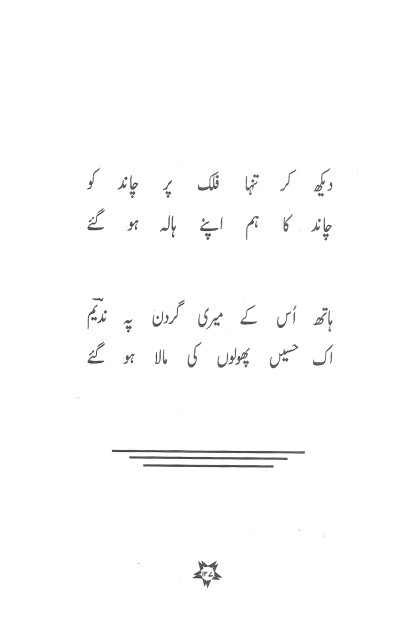 دیکھ کر تنہا فلک پر چاند کو
چاند کا ہم اپنے ہالہ ہو گئے
ہاتھ اُس کے میری گردن پہ ندیمؔ
اک حسیں پھولوں کی مالا ہو گئے